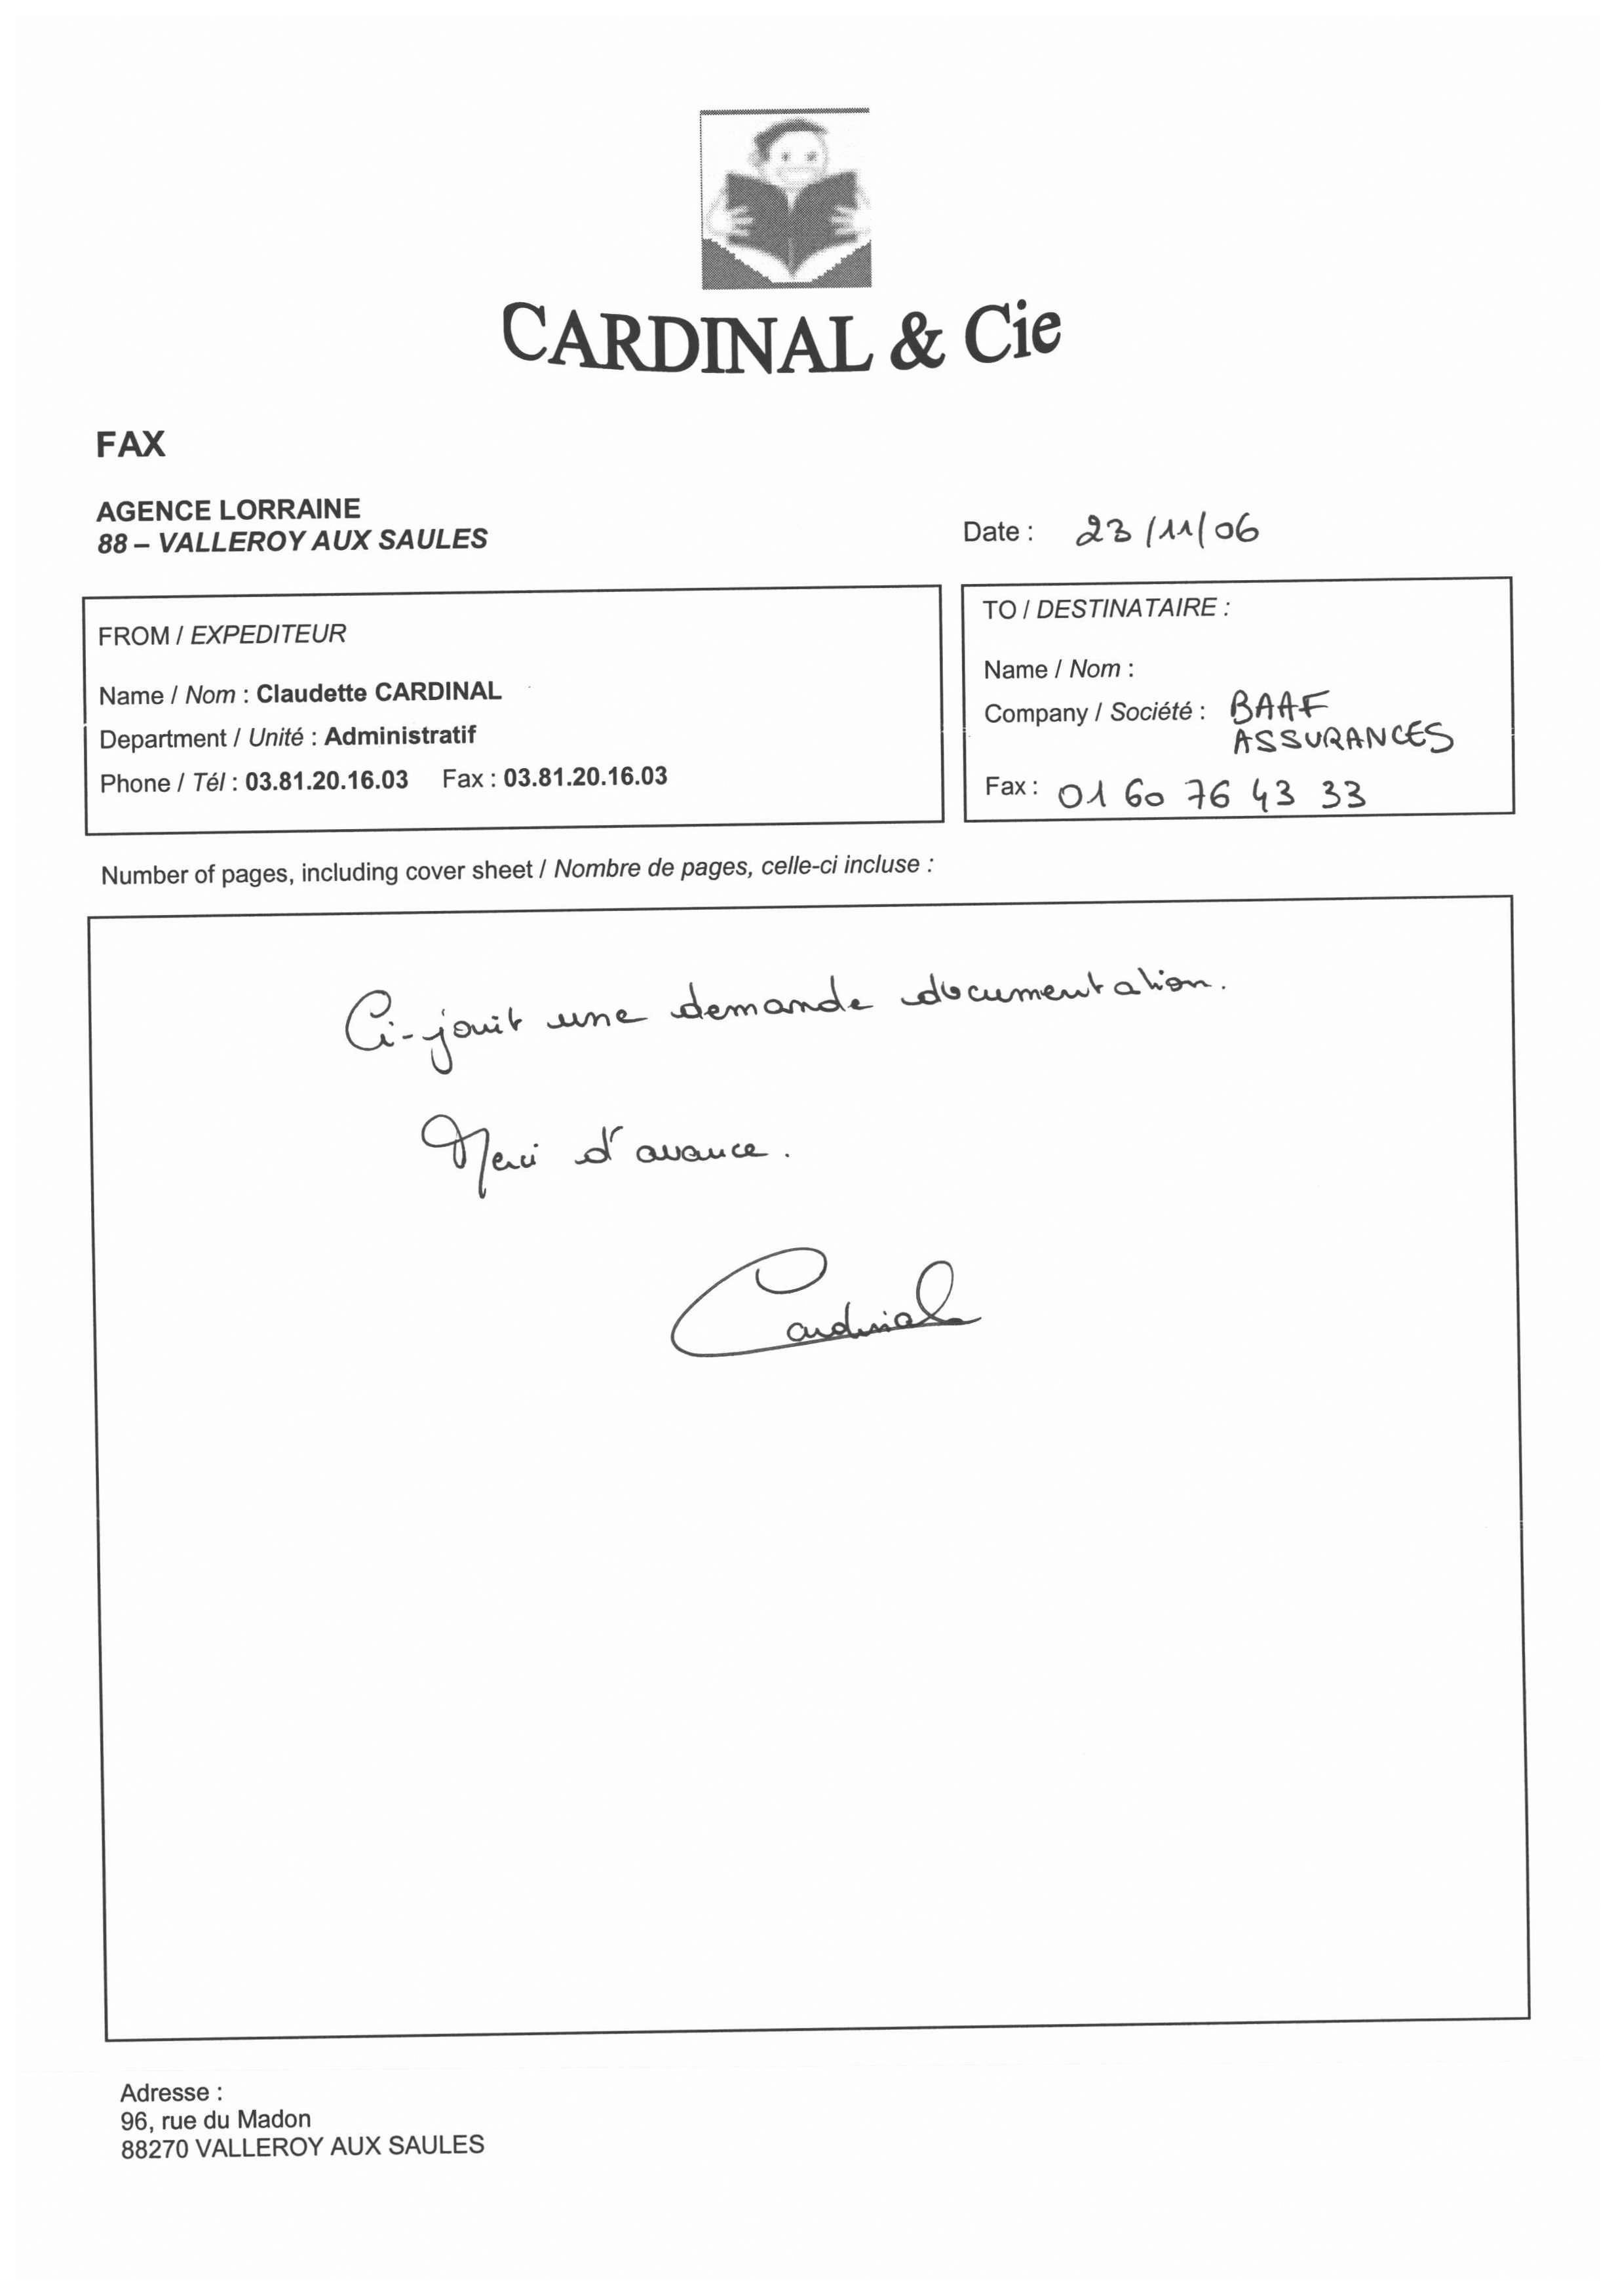 CARDINAL & Cie
FAX
AGENCE LORRAINE
88 – VALLEROY AUX SAULES
Date : 23/11/06
FROM / EXPEDITEUR
Name / Nom : Claudette CARDINAL
Department / Unité : Administratif
Phone / Tél : 03.81.20.16.03 Fax : 03.81.20.16.03
TO / DESTINATAIRE :
Name / Nom :
Company / Société : BAAF
ASSURANCES
Fax : 01 60 76 43 33
Number of pages, including cover sheet / Nombre de pages, celle-ci incluse :
Ci-joint une demande documentation.
Merci d'avance.
Cardinal
Adresse :
96, rue du Madon
88270 VALLEROY AUX SAULES